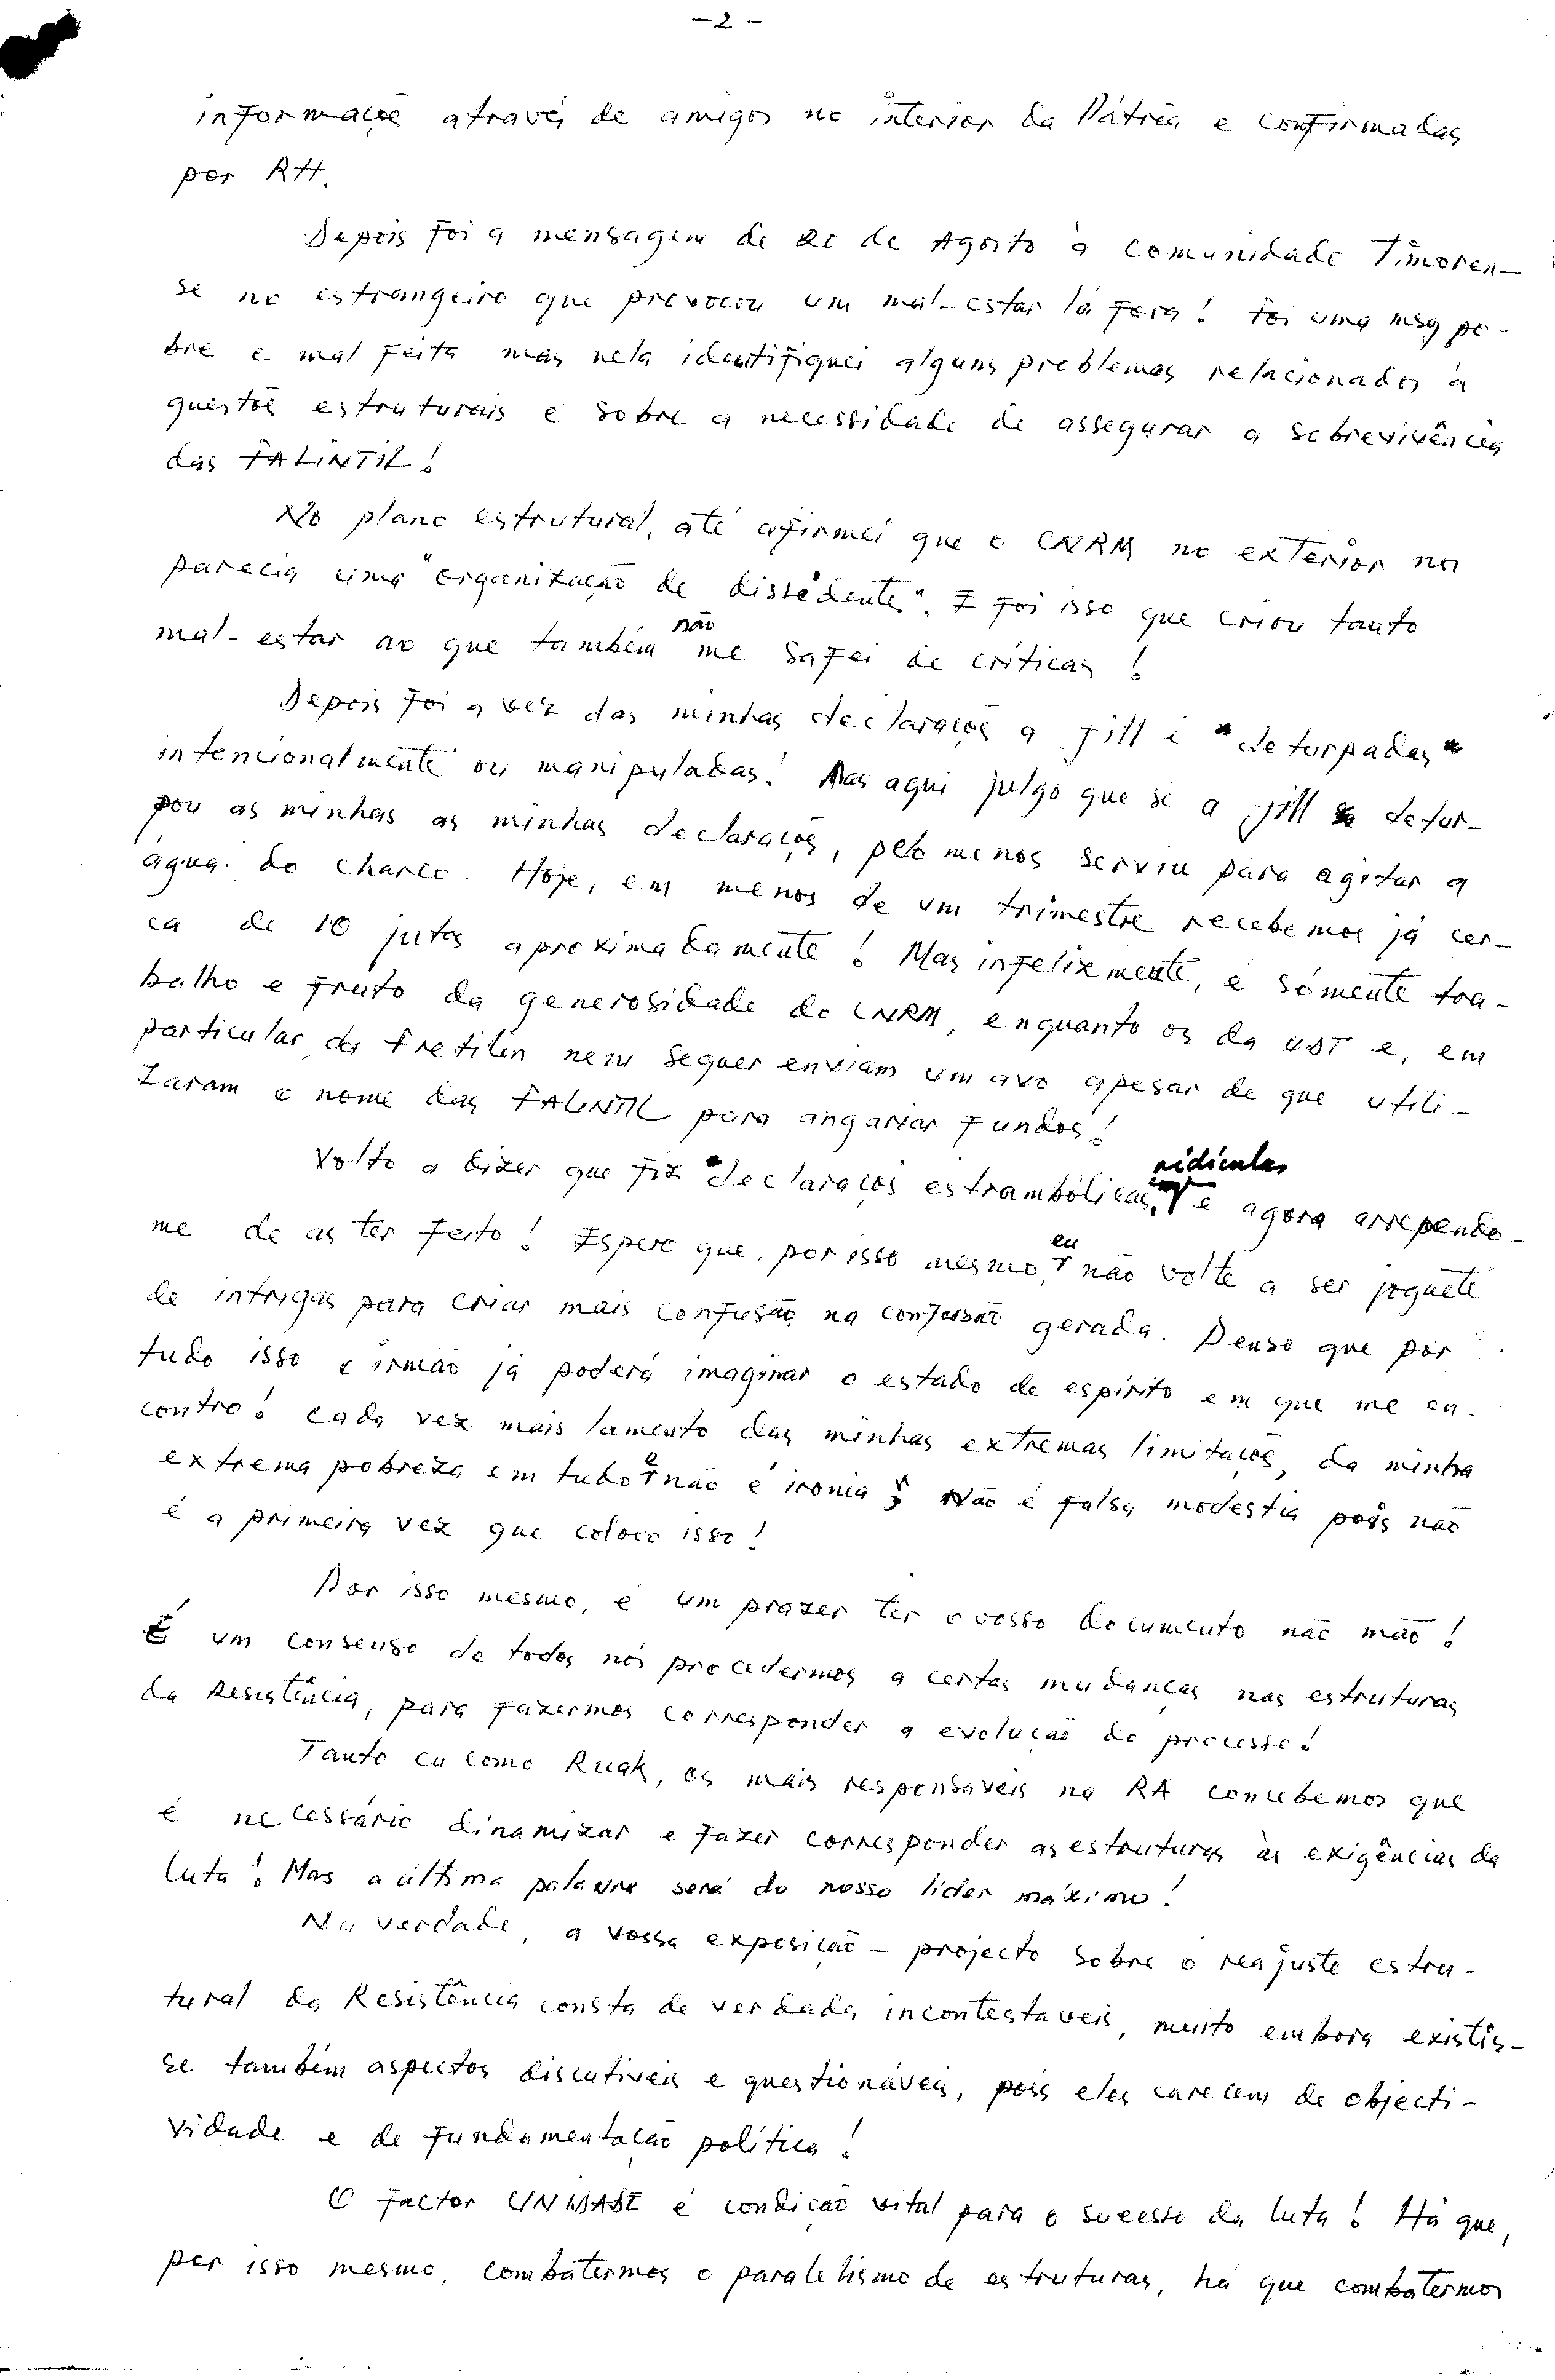 - 2 -
informaçõe através de amigos no interior da Pátria e confirmadas
por RH.
Depois foi a mensagem de 20 de Agosto à comunidade Timoren-
se no estrangeiro que provocou um mal-estar lá fora! Foi uma msg po-
bre e mal feita mas nela identifiquei alguns problemas relacionados à
questõe estruturais e sobre a necessidade de assegurar a sobrevivência
das FALINTIL!
No plano estrutural, até afirmei que o CNRM no exterior nos
parecia uma "organização de dissidente". E foi isso que criou tanto
mal-estar ao que também não me safei de críticas!
Depois foi a vez das minhas declarações a Jill e "deturpadas"
intencionalmente ou manipuladas! Mas aqui julgo que se a Jill detur-
pou as minhas as minhas declarações, pelo menos serviu para agitar a
água do charco. Hoje, em menos de um trimestre recebemos já cer-
ca de 10 jutas aproximadamente! Mas infelizmente, é sómente tra-
balho e fruto da generosidade do CNRM, enquanto os da UDT e, em
particular da Fretilin nem sequer enviam um avo apesar de que utili-
zaram o nome das FALINTIL para angariar fundos!
Volto a dizer que fiz declarações estrambólicas, ridículas e agora arrependo-
me de as ter feito! Espero que, por isso mesmo, eu não volte a ser joguete
de intrigas para criar mais confusão na confusão gerada. Penso que por
tudo isso o irmão já poderá imaginar o estado de espírito em que me en-
contro! Cada vez mais lamento das minhas extremas limitações, da minha
extrema pobreza em tudo e não é ironia; Não é falsa modestia pois não
é a primeira vez que coloco isso!
Por isso mesmo, é um prazer ter o vosso documento não mão!
É um consenso de todos nós procedermos a certas mudanças nas estruturas
da Resistência, para fazermos corresponder a evolução do processo!
Tanto eu como Ruak, os mais responsáveis na RA concebemos que
é necessário dinamizar e fazer corresponder as estruturas às exigências da
luta! Mas a última palavra será do nosso líder máximo!
Na verdade, a vossa exposição - projecto sobre o reajuste estru-
tural da Resistência consta de verdades incontestaveis, muito embora existis-
se também aspectos discutíveis e questionáveis, pois eles carecem de objecti-
vidade e de fundamentação política!
O factor UNIDADE é condição vital para o sucesso da luta! Há que,
por isso mesmo, combatermos o paralelismo de estruturas, há que combatermos